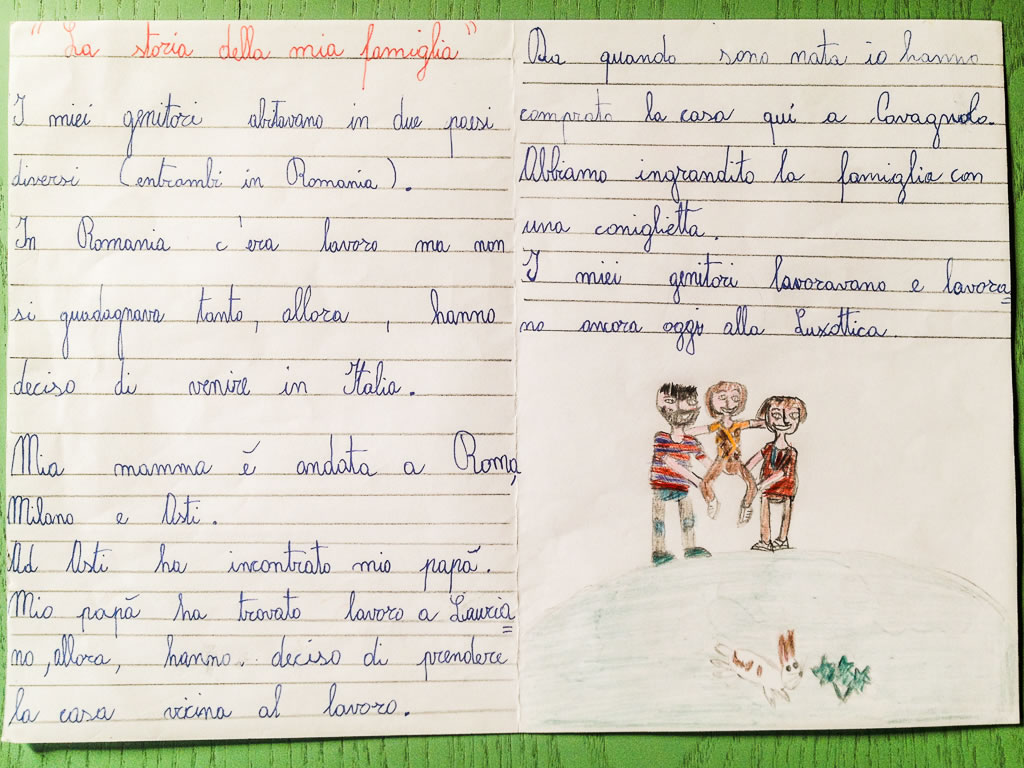 "La storia della mia famiglia"
I miei genitori abitavano in due paesi
diversi (entrambi in Romania).
In Romania c'era lavoro ma non
si guadagnava tanto, allora, hanno
deciso di venire in Italia.
Mia mamma é andata a Roma,
Milano e Asti.
Ad Asti ha incontrato mio papã.
Mio papã ha trovato lavoro a Lauria=
no, allora, hanno deciso di prendere
la casa vicina al lavoro.
Da quando sono nata io hanno
comprato la casa quí a Cavagnolo.
Abbiamo ingrandito la famiglia con
una coniglietta.
I miei genitori lavoravano e lavora=
no ancora oggi alla Luxottica.